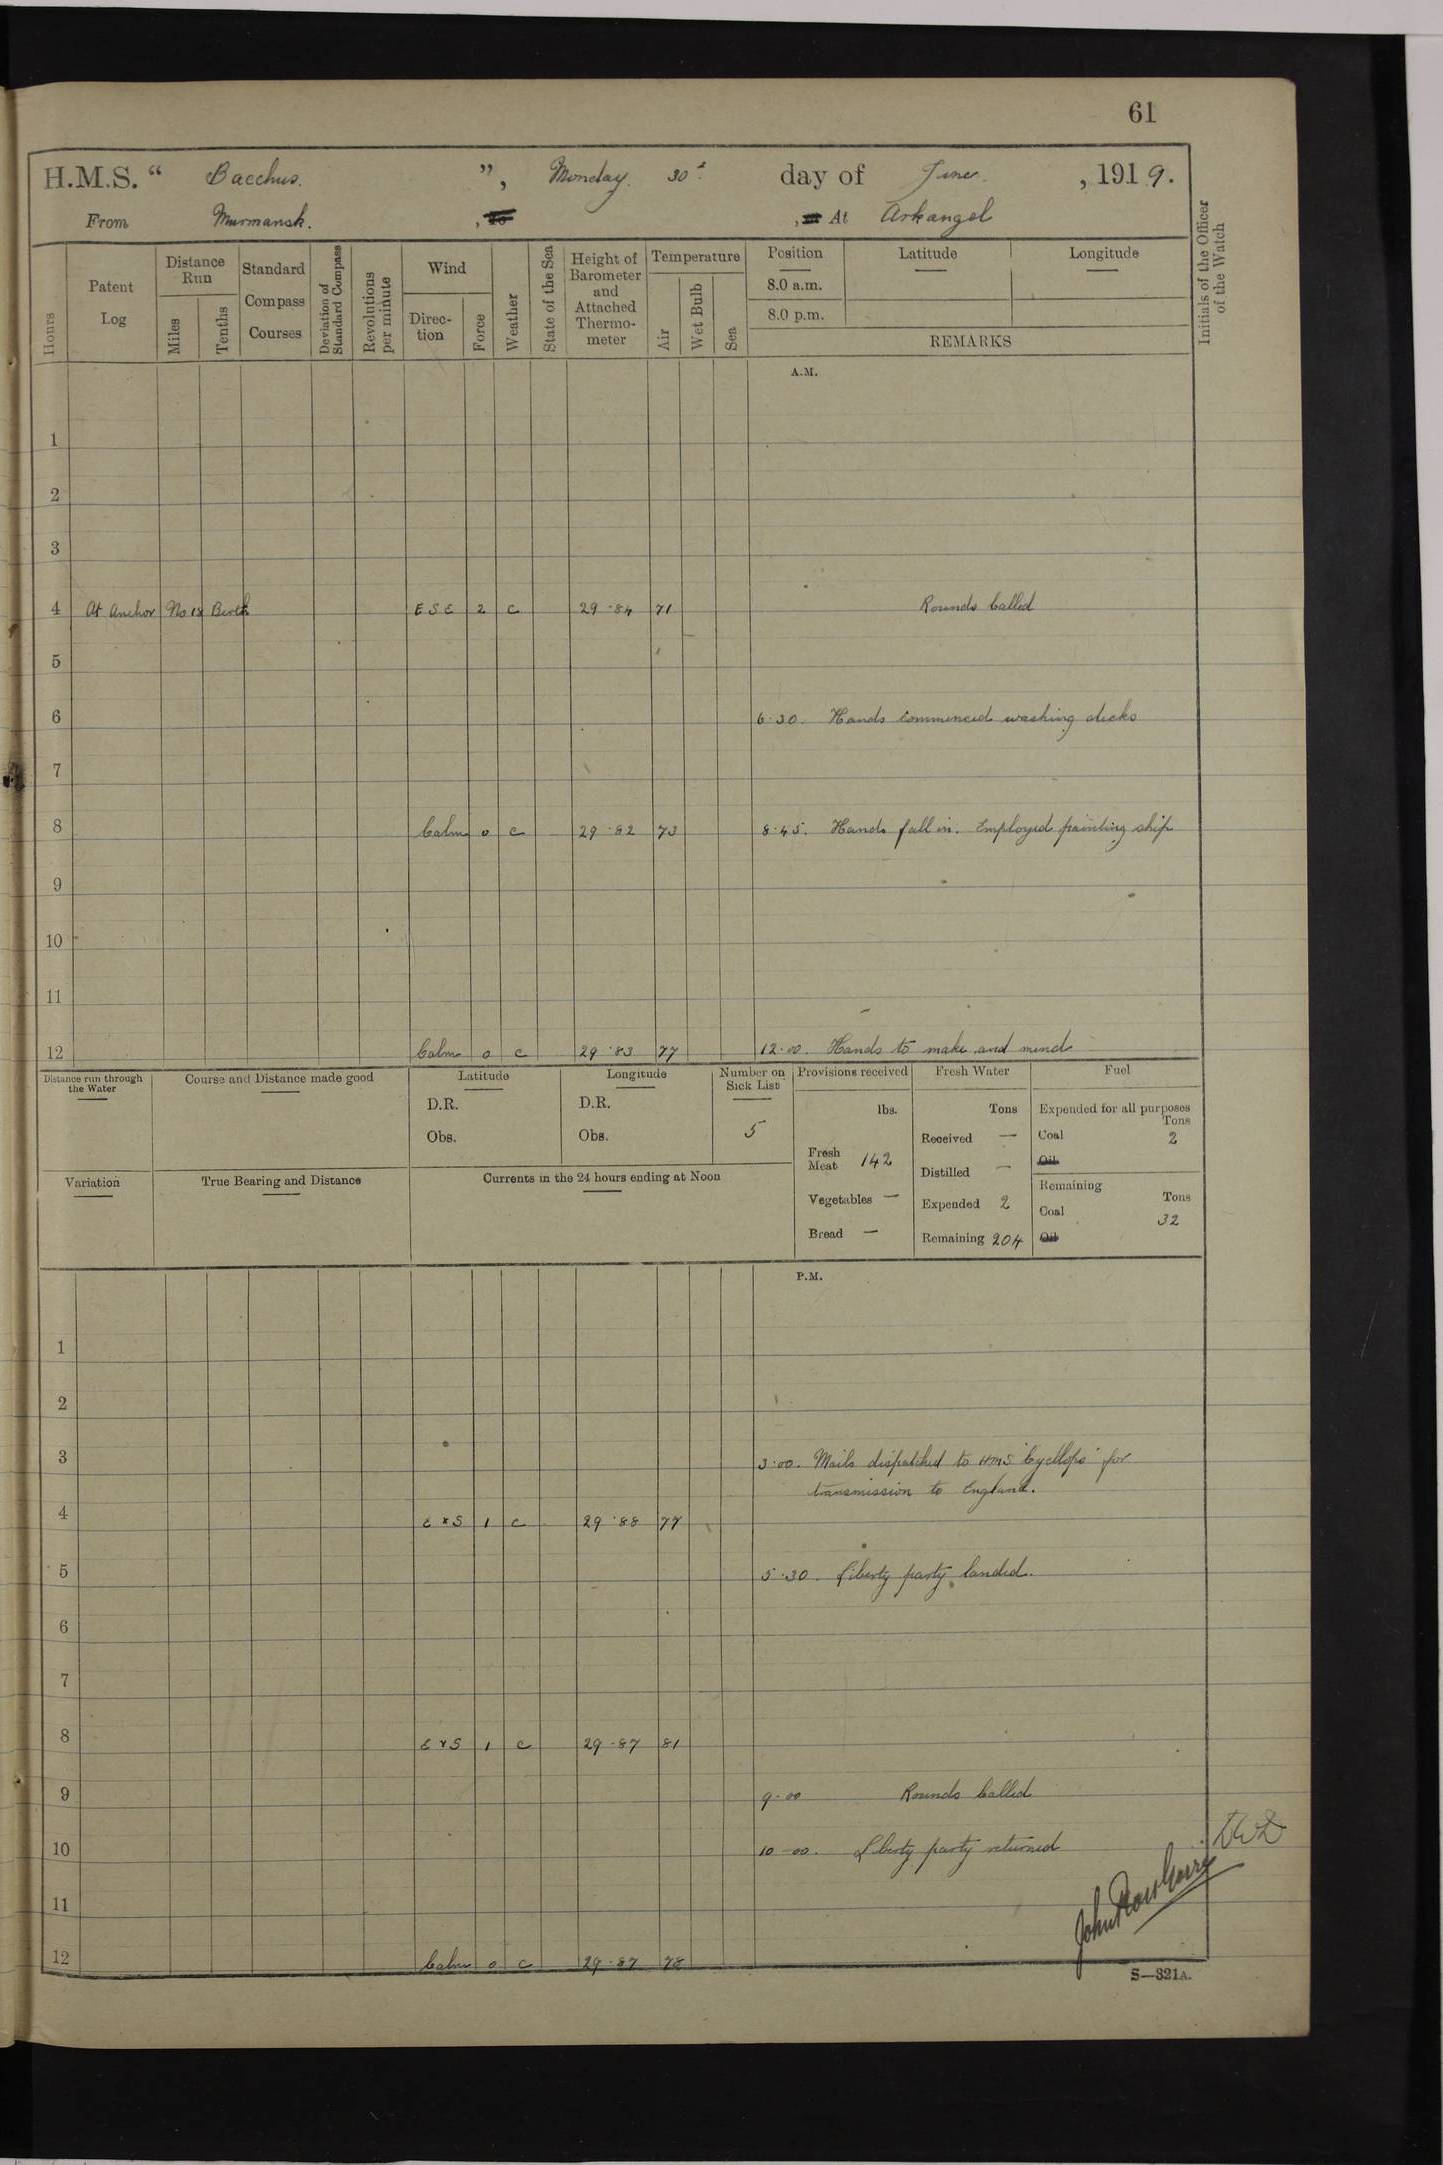 61
H.M.S. “ Bacchus. ”, Monday. 30th day of June. , 1919.
From Murmansk. , to , or At Arkangel
Hours
Patent Log
Distance Run
Miles
Tenths
Standard Compass Courses
Deviation of Standard Compass
Revolutions per minute
Wind
Direction
Force
Weather
State of the Sea
Height of Barometer and Attached Thermometer
Temperature
Air
Wet Bulb
Sea
Position
8.0 a.m.
8.0 p.m.
Latitude
Longitude
REMARKS
Initials of the Officer of the Watch
A.M.
1
2
3
4 At Anchor No 18 Berth ESE 2 c 29·84 71 Rounds Called
5
6 6·30. Hands commenced washing decks
7
8 Calm 0 c 29·82 73 8·45. Hands fall in. Employed painting ship
9
10
11
12 Calm 0 c 29·83 77 12·00. Hands to make and mend
Distance run through the Water
Course and Distance made good
Latitude
D.R.
Obs.
Longitude
D.R.
Obs.
Number on Sick List
5
Provisions received
lbs.
Fresh Meat 142
Vegetables —
Bread —
Fresh Water
Tons
Received —
Distilled —
Expended 2
Remaining 204
Fuel
Expended for all purposes
Tons
Coal 2
Oil
Remaining
Tons
Coal 32
Oil
Variation
True Bearing and Distance
Currents in the 24 hours ending at Noon
P.M.
1
2
3 3·00. Mails dispatched to HMS "Cycllops" for
transmission to England.
4 E x S 1 c 29·88 77
5 5·30. Liberty party landed.
6
7
8 E x S 1 c 29·87 81
9 9·00 Rounds Called
10 10·00. Liberty party returned
11
12 Calm 0 c 29·87 78
S—321A.